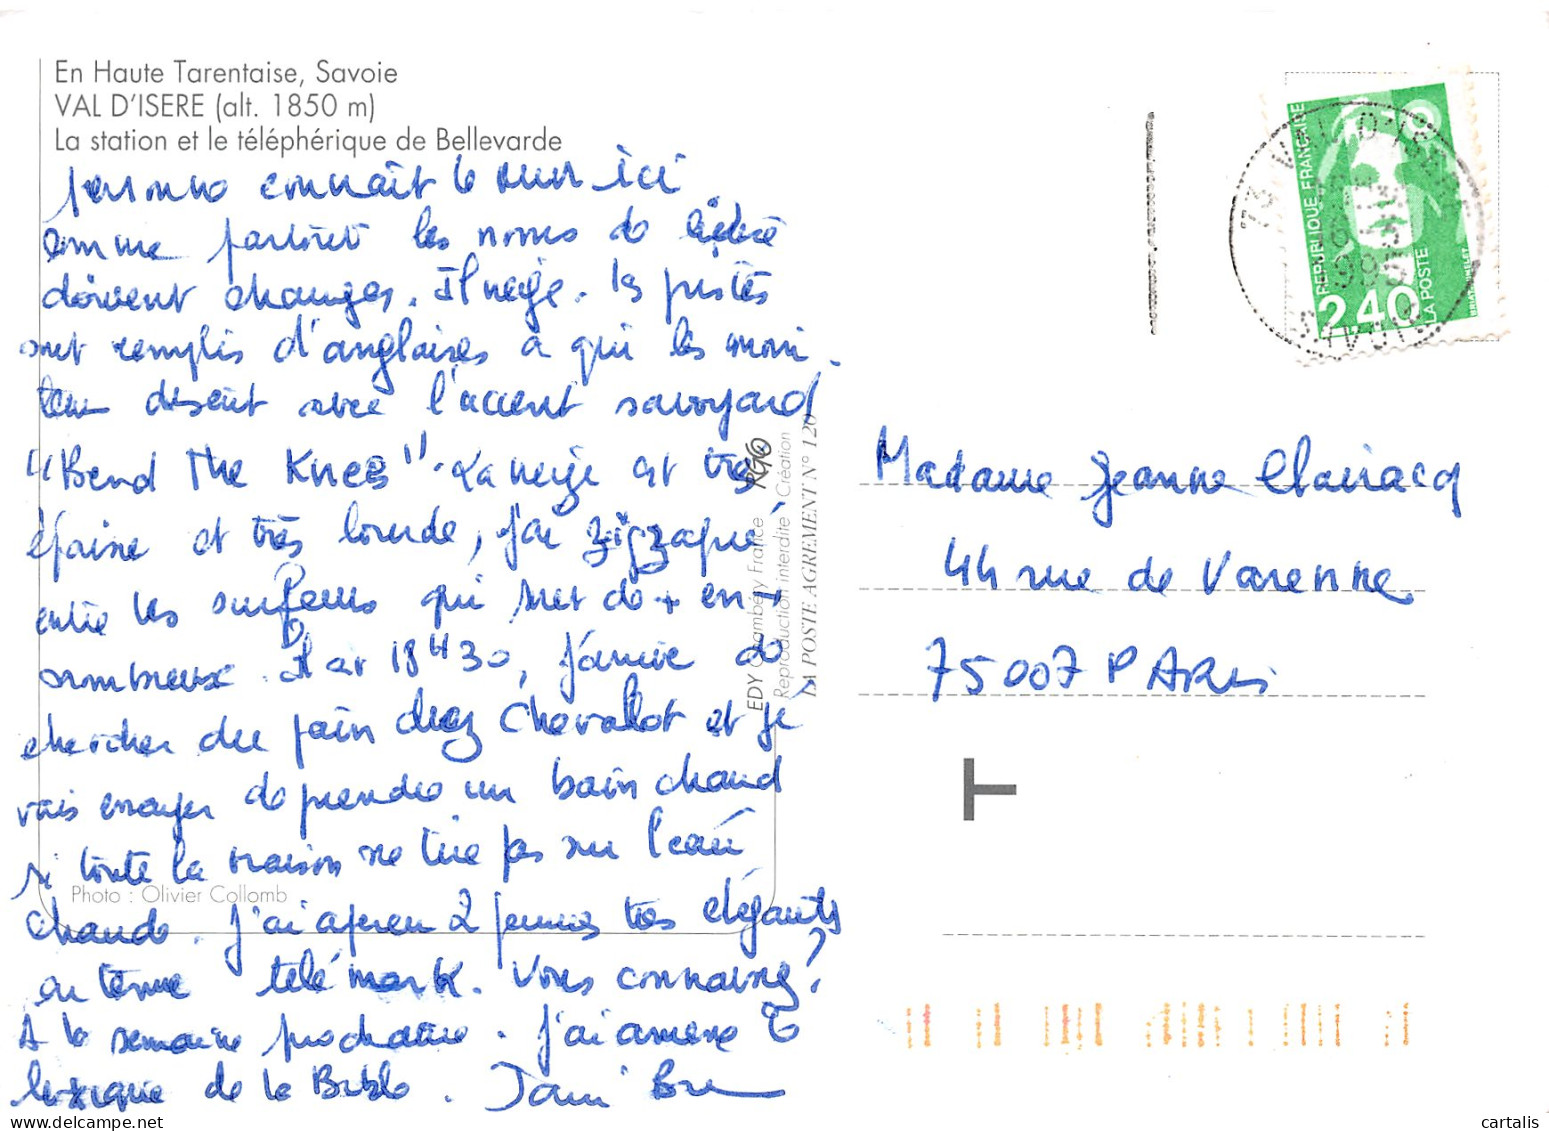 En Haute Tarentaise, Savoie
VAL D'ISERE (alt. 1850 m)
La station et le téléphérique de Bellevarde
personne connaît le ici
comme partout les noms de
doivent changer. Il neige. les pistes
sont remplis d'anglaises à qui les moni
teurs disent avec l'accent savoyard
"Bend The Knees". La neige est très
épaisse et très lourde, j'ai zigzagué
entre les surfeurs qui sont de + en +
nombreux. Il est 18H30, j'arrive de
chercher du pain chez Chevallot et je
vais essayer de prendre un bain chaud
si toute la maison ne tire pas sur l'eau
chaude. J'ai aperçu 2 femmes très élégantes
en tenue télémark. Vous connaissez ?
A la semaine prochaine. J'ai amené le
lexique de la Bible.
Photo : Olivier Collomb
EDY Chambéry France
Reproduction interdite Création
LA POSTE AGREMENT N° 120
REPUBLIQUE FRANCAISE
LA POSTE
2,40
73 VAL D'ISERE
SAVOIE
Madame Jeanne Clairacq
44 rue de Varenne
75007 PARIS
T
cartalis